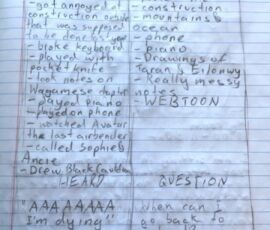 - got annoyed at
construction outside
that was supposed
to be done last year
- broke keyboard
- played with
pocket knife
- took notes on
Wagamese chapter
- played piano
- played on phone
- watched Avatar
the last airbender
- called Sophie &
Annie
- Drew Black Cauldron
HEARD
"AAAAAAAA
I'm dying"
- construction
- mountains &
ocean
- phone
- piano
- Drawings of
Taran & Eilonwy
- Really messy
notes
- WEBTOON
QUESTION
When can I
go back to